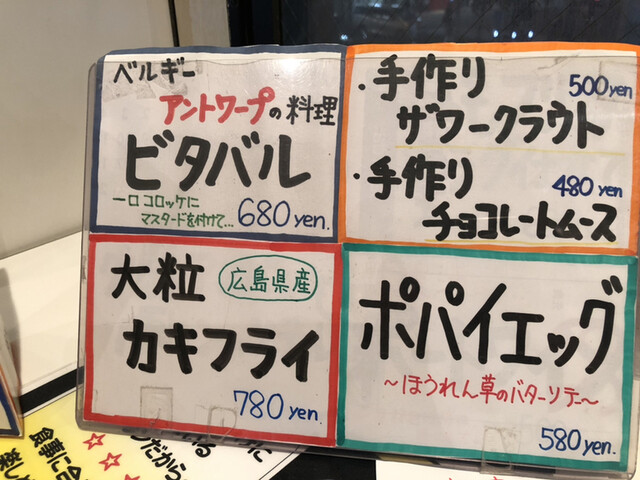 ベルギー
アントワープの料理
ビタバル
一口コロッケに
マスタードを付けて…
680 yen.
・手作り
500 yen
ザワークラウト
・手作り
480 yen
チョコレートムース
大粒
広島県産
カキフライ
780 yen.
ポパイエッグ
〜ほうれん草のバターソテー〜
580 yen.
食事に合
楽し